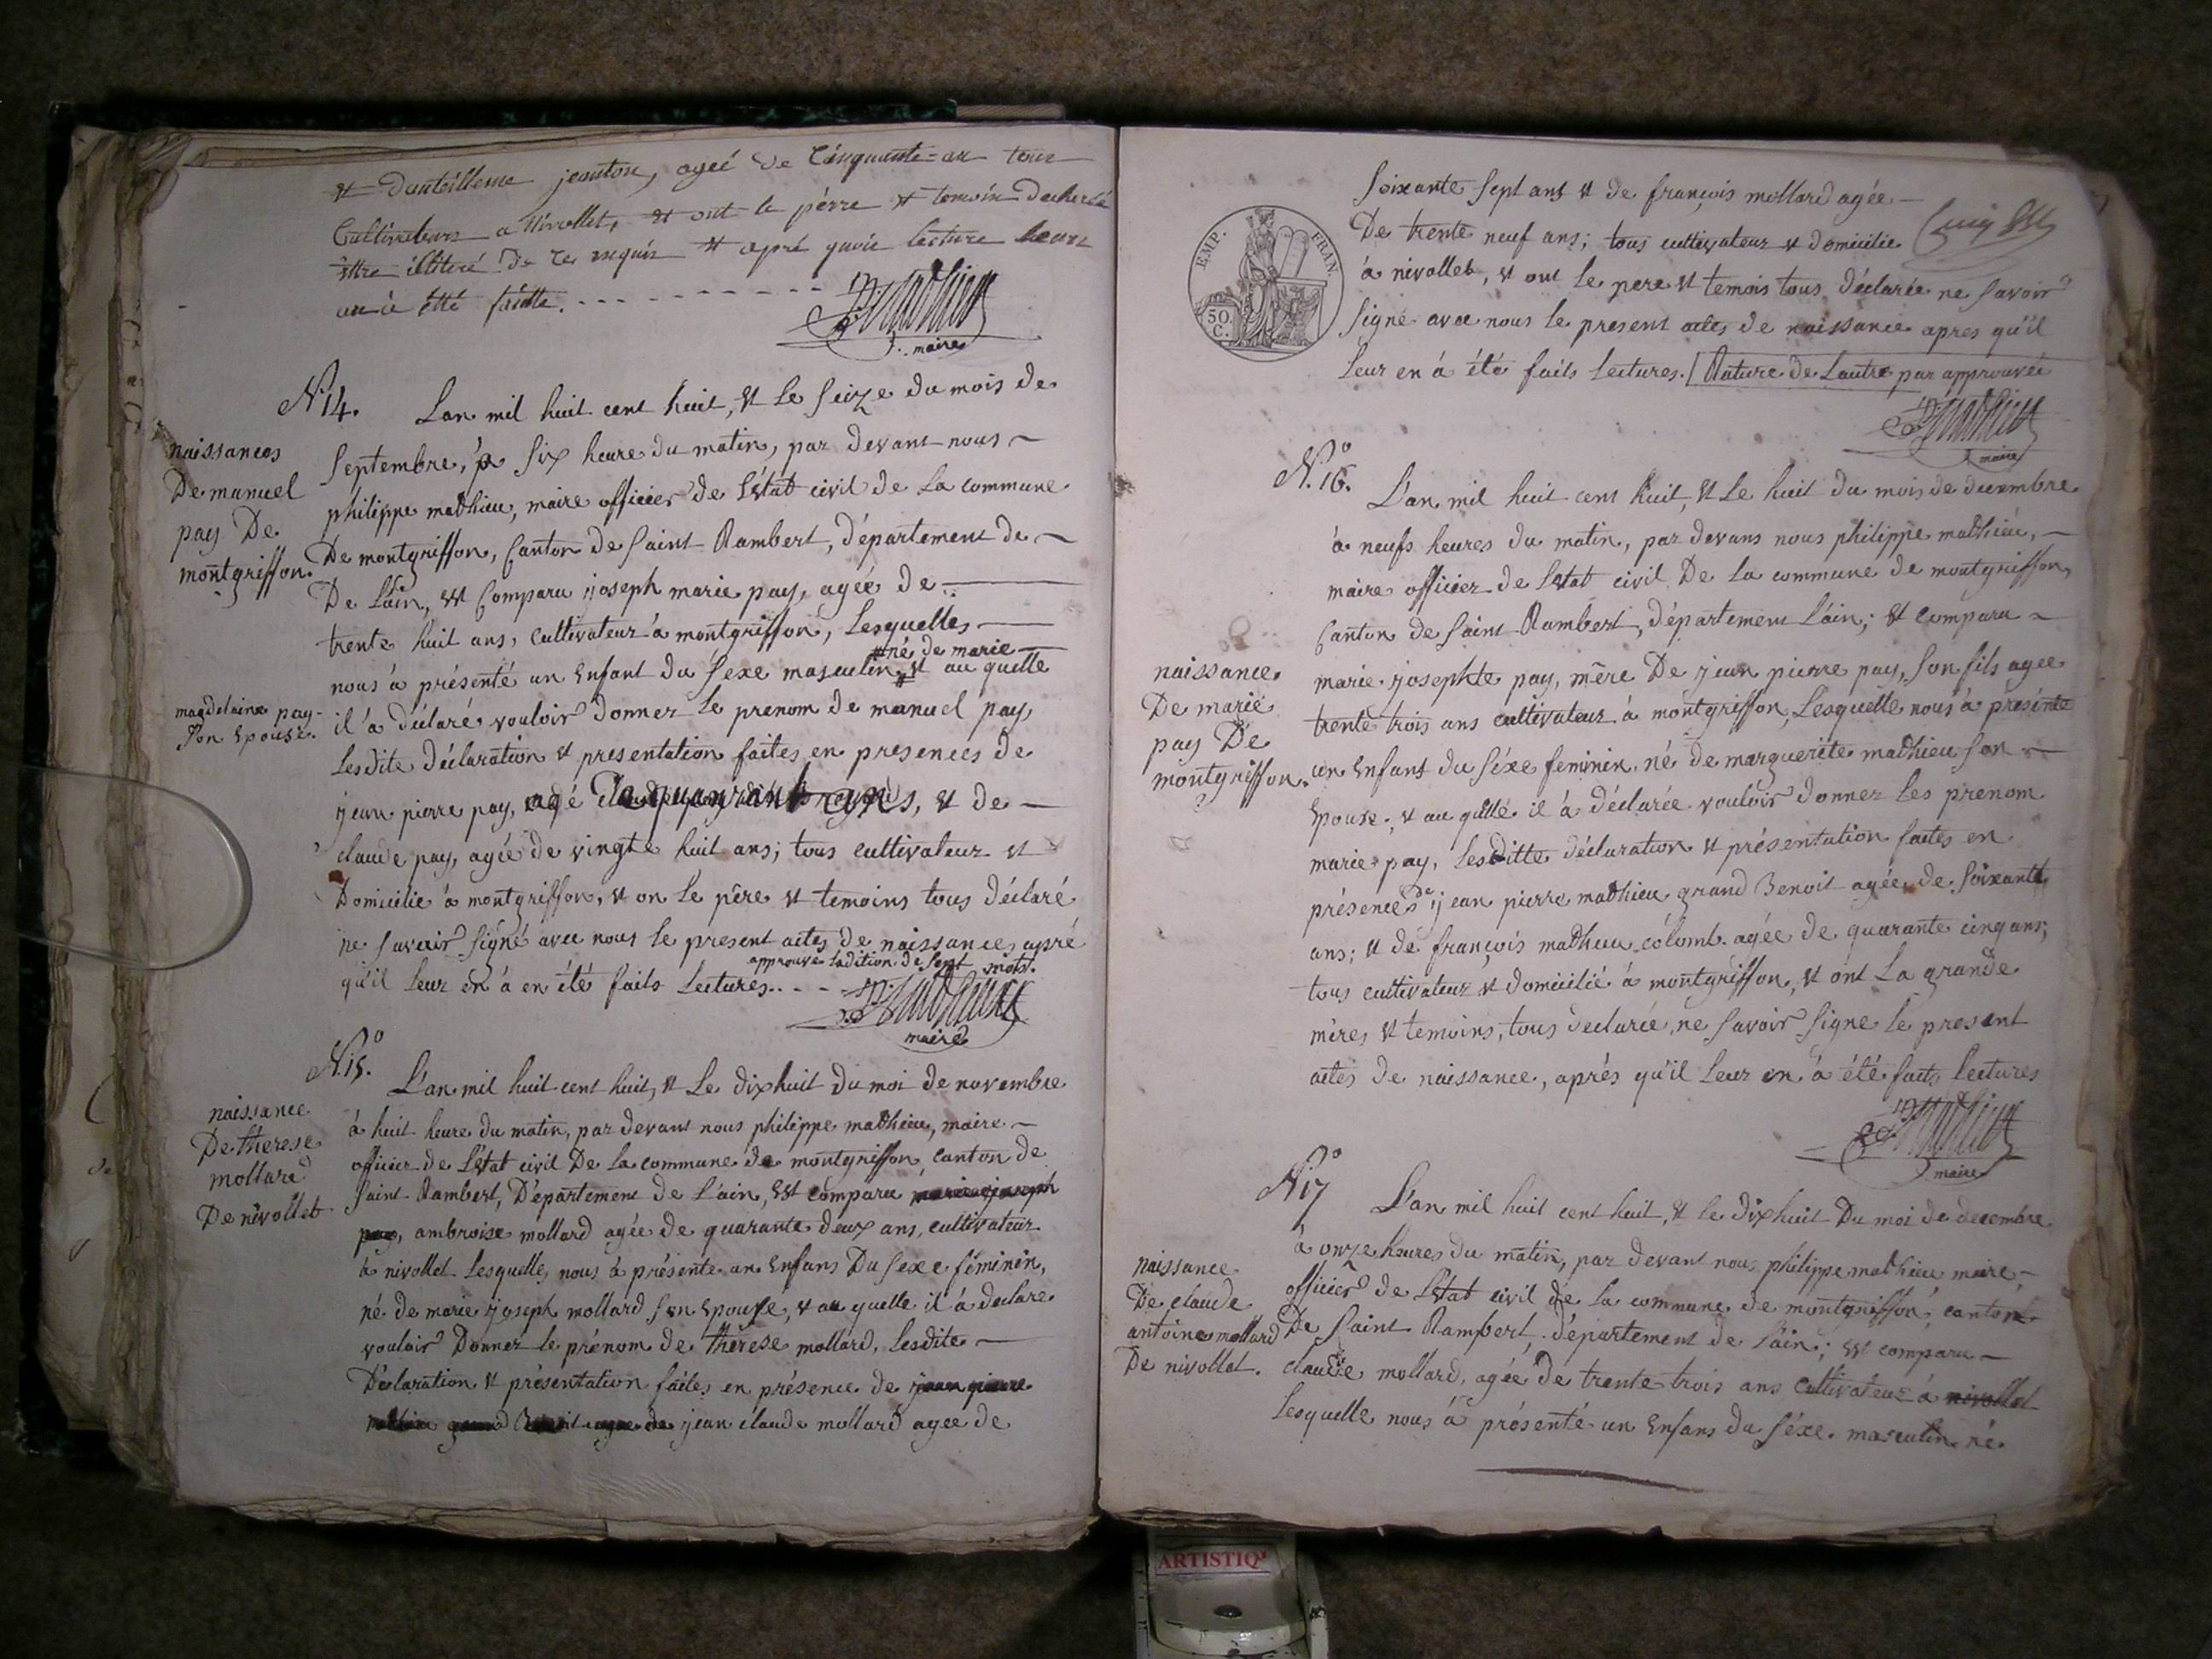 et danteilleme jeanton, ageé de Cinquante = an tous
Cultivateurs a Nivollet, et ont le pérre et temoin declarée
ettre illiteré de ce requis et apré qu'vie lecture leurs
an à étté faitte.
maire
N.14. L'an mil huit cent huit, et Le seize du mois de
naissances
De manuel
pay De
montgriffon.
Septembre, à six heure du matin, par devant nous
philippe mathieu, maire officier de l'état civil de la commune
De montgriffon, Canton de Saint Rambert, département de
De L'ain, est Comparu joseph marie pay, ageé de
trente huit ans, cultivateur à montgriffon, Lesquelles
né de marie
nous à présenté un Enfant du sexe masculin et au quelle
magdelaine pay
son Epouse.
il à déclaré vouloir donner Le prenom de manuel pay,
Lesdite déclaration et presentation faites en presences de
jean pierre pay, agé de quarante ans, et de
claude pay, agée de vingte huit ans; tous cultivateur et
Domicilié à montgriffon, et on Le père et temoins tous déclaré
ne savoir signé avec nous le present actes de naissance, apré
approuvé ladition de sept mots.
qu'il Leur en à en été faits Lectures.
maire
N.15.° L'an mil huit cent huit, et Le dixhuit du moi de novembre
naissance
De therese
mollard
De nivollet
à huit heure du matin, par devant nous philippe mathieu, maire
officier de L'état civil De La commune de montgriffon, canton de
saint Rambert, Département de L'ain, Est comparu marie joseph
pay, ambroise mollard agée de quarante deux ans, cultivateur
à nivollet Lesquelle, nous à présente un Enfans Du sexe féminin,
né de marie joseph mollard son Epouse, et au quelle il à declare
vouloir Donner le prénom de thérèse mollard, Lesdite
Déclaration et présentation faites en présence de jean pierre
jean claude mollard agee de
EMP. FRAN.
50 C.
soixante sept ans et de françois mollard agée
De trente neuf ans; tous cultivateur et domicilie
à nivollet, et ont le pere et temois tous déclarée ne savoir
signé avec nous le present actes de naissance apres qu'il
Leur en à été faits Lectures. Rature de Lautre par approuvée
maire
N.° 16. L'an mil huit cent huit, et Le huit du mois de decembre
à neufs heures du matin, par devans nous philippe mathieu,
maire officier de l'état civil De La commune de montgriffon,
Canton de Saint Rambert, département L'ain; et comparu
naissance
De marie
pay De
montgriffon.
marie josephte pay, mère De jean pierre pay, son fils agee
trente trois ans cultivateur à montgriffon, Lesquelle nous à présente
un Enfant du séxe feminin né de marguerite mathieu son
Epouse, et au quelle il à déclarée vouloir donner Les prenom
marie pay, Lesditte déclaration et présentation faites en
présences de jean pierre mathieu grand Benoit agée de soixante
ans; et de françois mathieu colomb agée de quarante cinq ans;
tous cultivateur et domicilié à montgriffon, et ont La grande
mères et temoins, tous declarée, ne savoir signe Le present
actes de naissance, aprés qu'il Leur en à été faits lectures
maire
N.17° L'an mil huit cent huit, et le dixhuit Du moi de decembre
naissance
De claude
antoine mollard
De nivollet.
à onze heures du matin, par devant nous philippe mathieu maire,
officier de l'état civil de la commune de montgriffon, canton
De Saint Rambert, département de L'ain; est comparu
claude mollard, agée de trente trois ans cultivateur à nivollet
Lesquelle nous à présenté un Enfans du séxe masculin né
ARTISTIQ